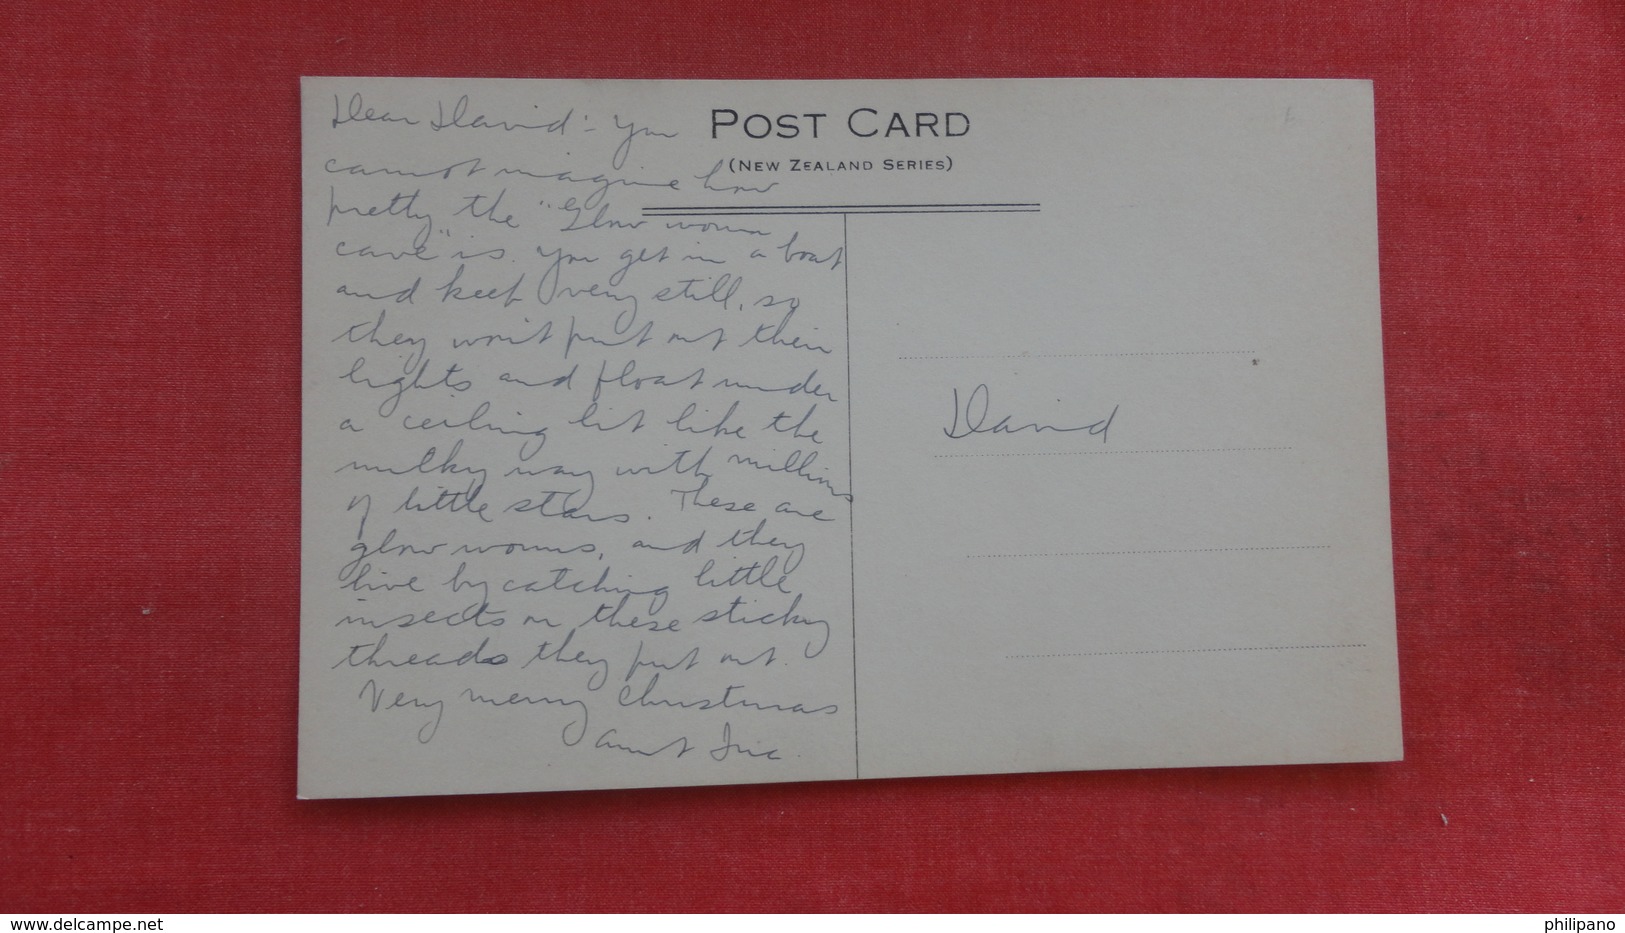 POST CARD
(NEW ZEALAND SERIES)
Dear David :- you
cannot imagine how
pretty the "Glow worm
cave" is. You get in a boat
and keep very still, so
they won't put out their
lights and float under
a ceiling lit like the
milky way with millions
of little stars. These are
glow worms, and they
live by catching little
insects on these sticky
threads they put out.
Very merry Christmas
Aunt
David
delcampe.net
philipano